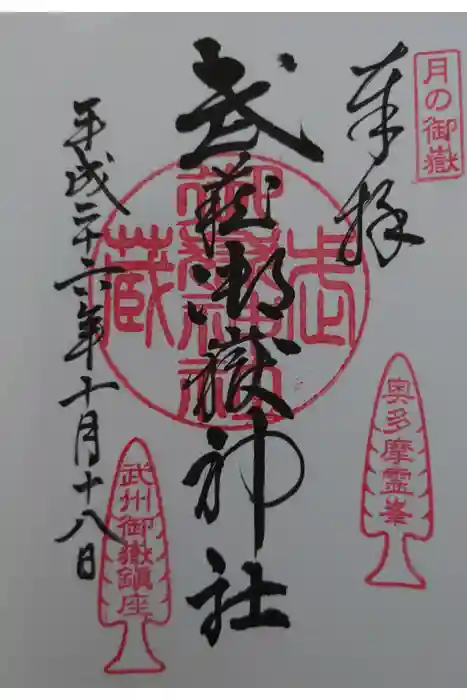 月の御嶽
奉拝
奥多摩霊峯
武蔵御嶽神社
武蔵御嶽神社
武州御嶽鎮座
平成二十六年十月十八日